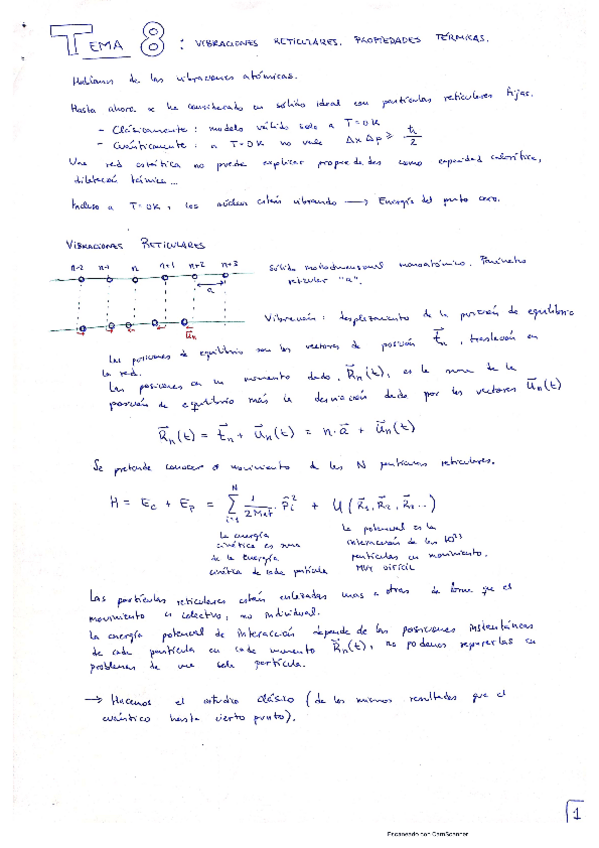 TEMA 8: VIBRACIONES RETICULARES. PROPIEDADES TÉRMICAS.
Hablamos de las vibraciones atómicas.
Hasta ahora se ha considerado un sólido ideal con partículas reticulares fijas.
- Clásicamente: modelo válido solo a T=0K
- Cuánticamente: a T=0K no vale Δx Δp ≥ ħ/2
Una red estática no puede explicar propiedades como capacidad calorífica,
dilatación térmica...
Incluso a T=0K, los núcleos están vibrando → Energía del punto cero.
VIBRACIONES RETICULARES
n-2 n-1 n n+1 n+2 n+3
a
ūn
Sólido monodimensional monoatómico. Parámetro
reticular "a".
Vibración: desplazamiento de la posición de equilibrio
Las posiciones de equilibrio son los vectores de posición t⃗n, traslación en
la red.
Las posiciones en un momento dado, R⃗n(t), es la suma de la
posición de equilibrio más la desviación dada por los vectores u⃗n(t)
R⃗n(t) = t⃗n + u⃗n(t) = n·a⃗ + u⃗n(t)
Se pretende conocer el movimiento de las N partículas reticulares.
H = Ec + Ep = Σ(i=1, N) 1/2Mat · p̂i² + U(R⃗1, R⃗2, R⃗3...)
La energía
cinética es suma
de la energía
cinética de cada partícula
La potencial es la
interacción de las 10²³
partículas en movimiento.
MUY DIFÍCIL
Las partículas reticulares están enlazadas unas a otras de forma que el
movimiento es colectivo, no individual.
La energía potencial de interacción depende de las posiciones instantáneas
de cada partícula en cada momento R⃗n(t), no podemos separarlas en
problemas de una sola partícula.
→ Hacemos el estudio clásico (da los mismos resultados que el
cuántico hasta cierto punto).
1
Escaneado con CamScanner